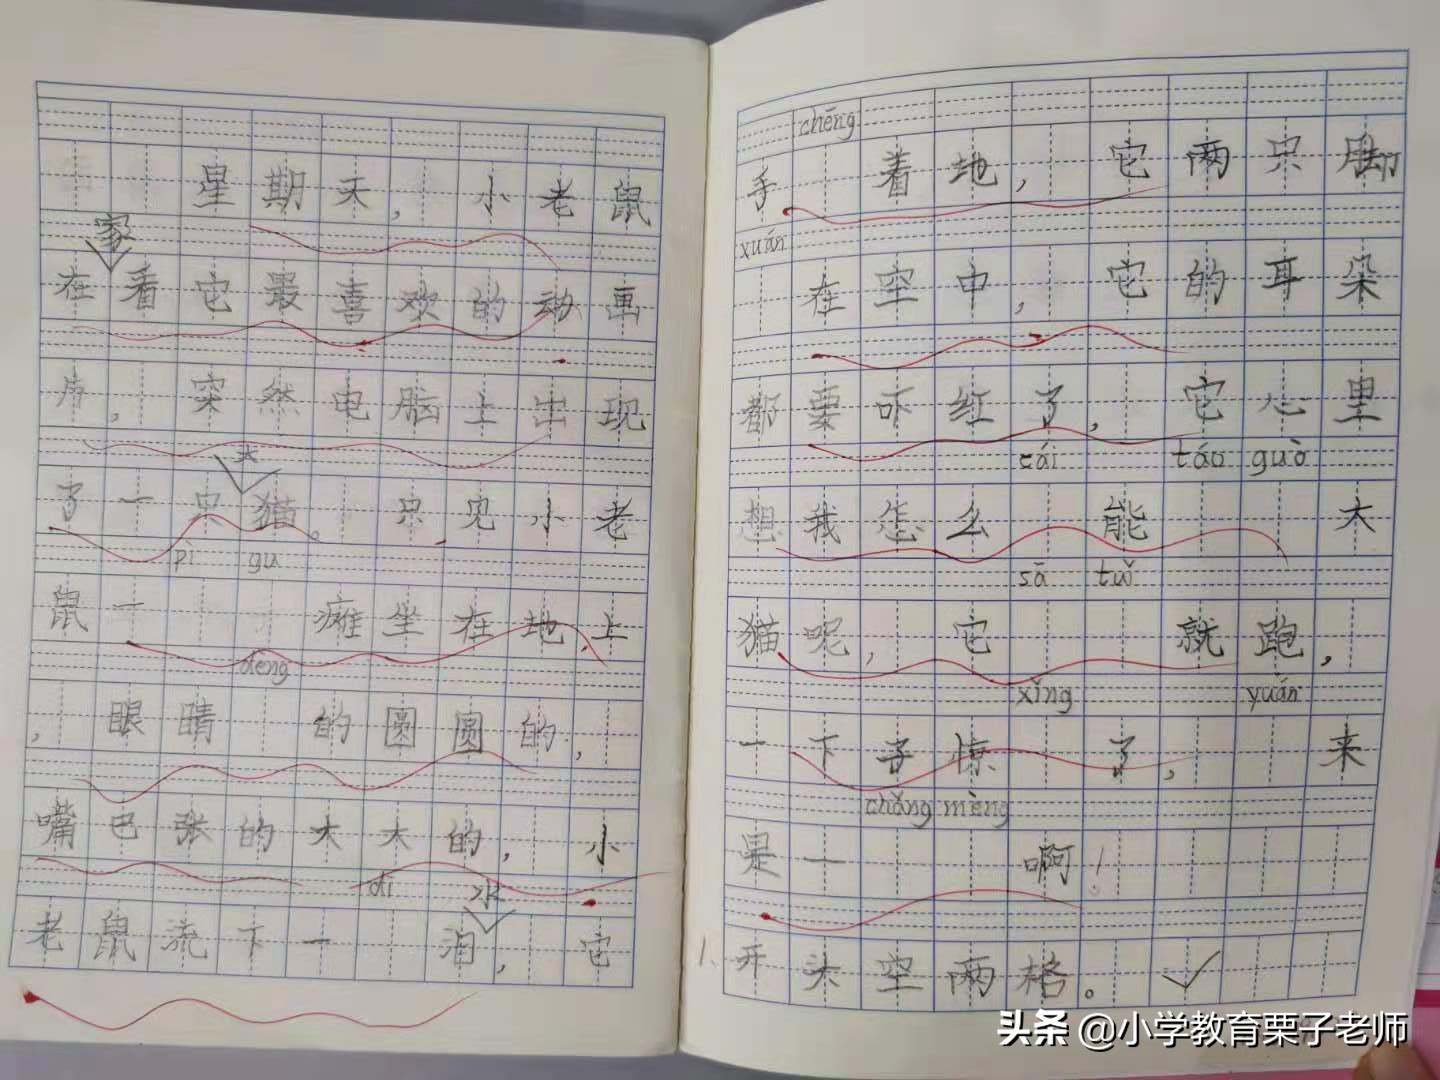 星期天，小老鼠
家
在看它最喜欢的动画
片，突然电脑上出现
大
了一只猫。只见小老
pì gu
鼠一瘫坐在地上
deng
，眼睛的圆圆的，
嘴巴张的大大的，小
di 水
老鼠流下一泪，它
chēng
手着地，它两只脚
xuán
在空中，它的耳朵
都栗吓红了，它心里
cái táo guò
想我怎么能大
sā tuǐ
猫呢，它就跑，
xǐng yuán
一下子惊了，来
chǎng mèng
是一啊！
1、开头空两格。✓
头条 @小学教育栗子老师